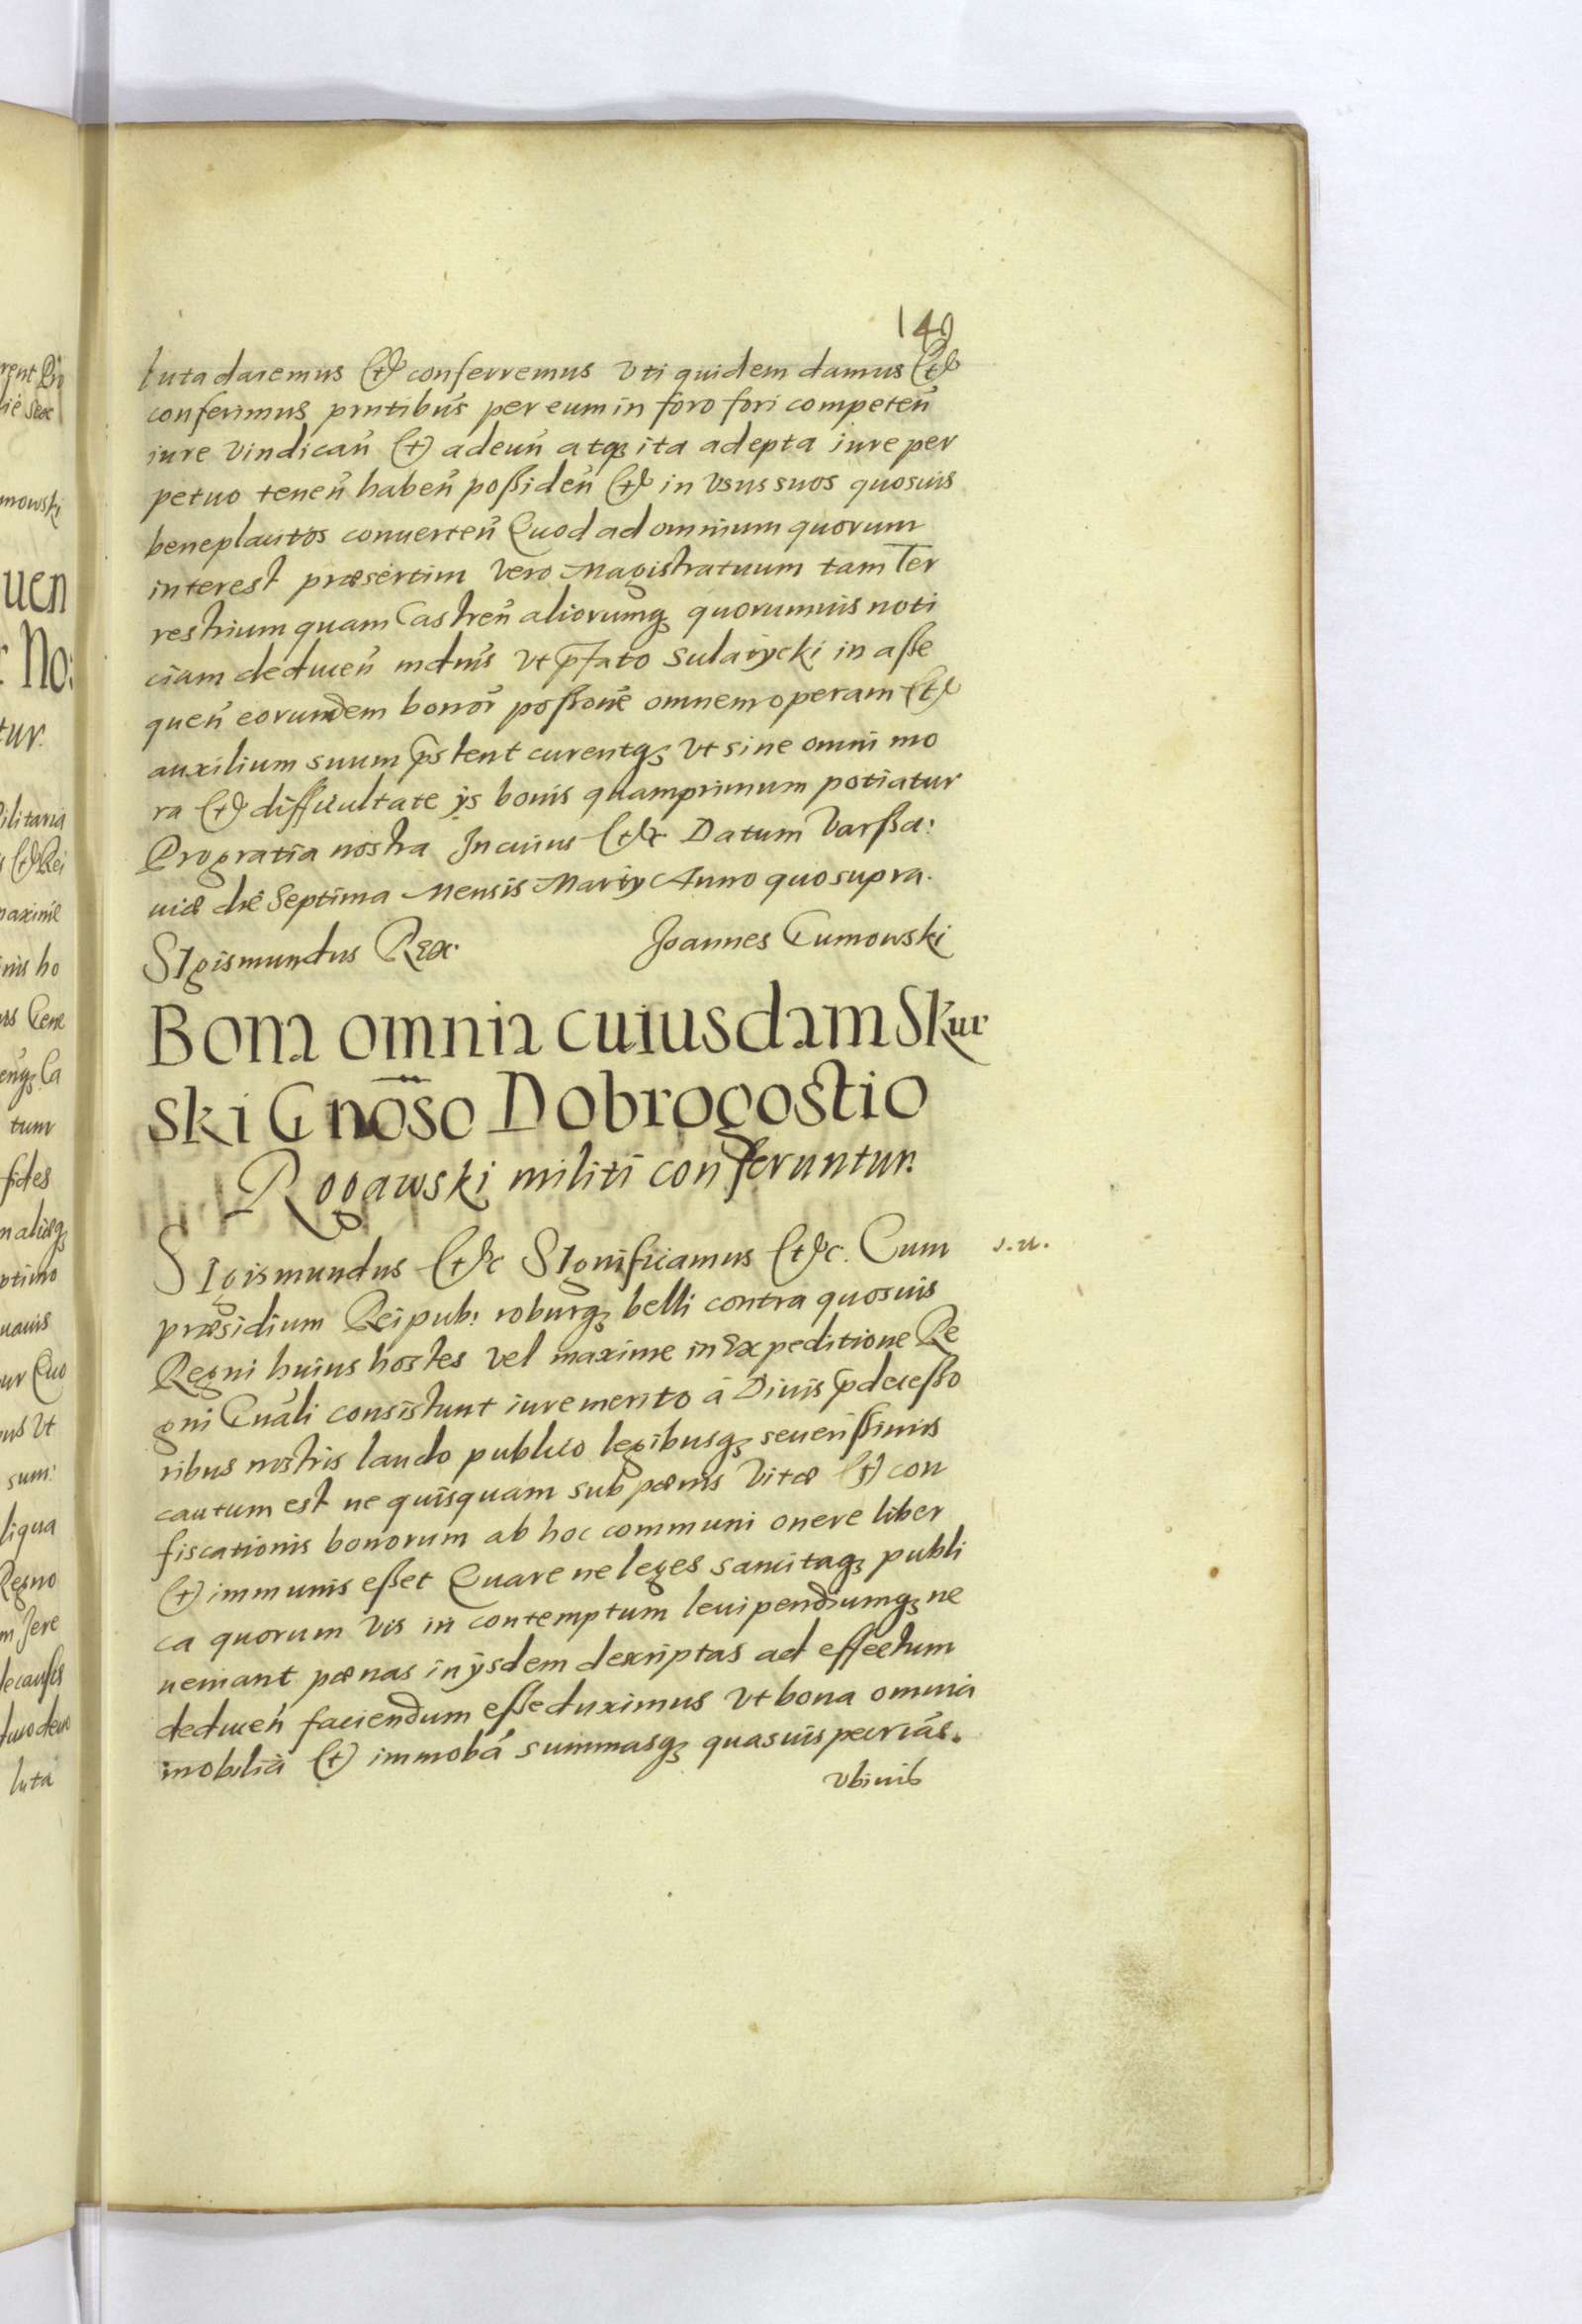 149
luta daremus et conferremus Vti quidem damus et
conferimus pntibus per eum in foro fori competeñ
iure Vindicañ et adeuñ atq; ita adepta iure per
petuo teneñ habeñ poßideñ et in Vsus suos quosuis
beneplacitos conuerteñ Quod ad omnium quorum
interest præsertim Vero Magistratuum tam Ter
restrium quam Castreñ aliorumq; quorumuis noti
ciam deduceñ mdmus Vt pfato Sularzycki in aße
queñ eorundem bonor poßione omnem operam et
auxilium suum pstent curentq; Vt sine omni mo
ra et difficultate ijs bonis quamprimum potiatur
Pro gratia nostra In cuius etc Datum Varßa:
uiæ die Septima Mensis Martij Anno quo supra.
Sigismundus Rex. Joannes Cumowski
Bona omnia cuiusdam Skur
ski Gnoso Dobrogostio
Rogawski militi conferuntur.
Sigismundus etc Significamus etc. Cum
s.u.
præsidium Reipub: roburq; belli contra quosuis
Regni huius hostes Vel maxime in Expeditione Re
gni Gnali consistunt iure merito á Diuis pdeceßo
ribus nostris laudo publico legibusq; seuerißimis
cautum est ne quisquam sub pœnis Vitæ et con
fiscationis bonorum ab hoc communi onere liber
et immunis eßet Quare ne leges sancitaq; publi
ca quorum Vis in contemptum leuipendiumq; ne
ueniant pœnas in ijsdem descriptas ad effectum
deduceñ faciendum eße duximus Vt bona omnia
mobilia et immoba summasq; quasuis pecrias.
Vbiuis